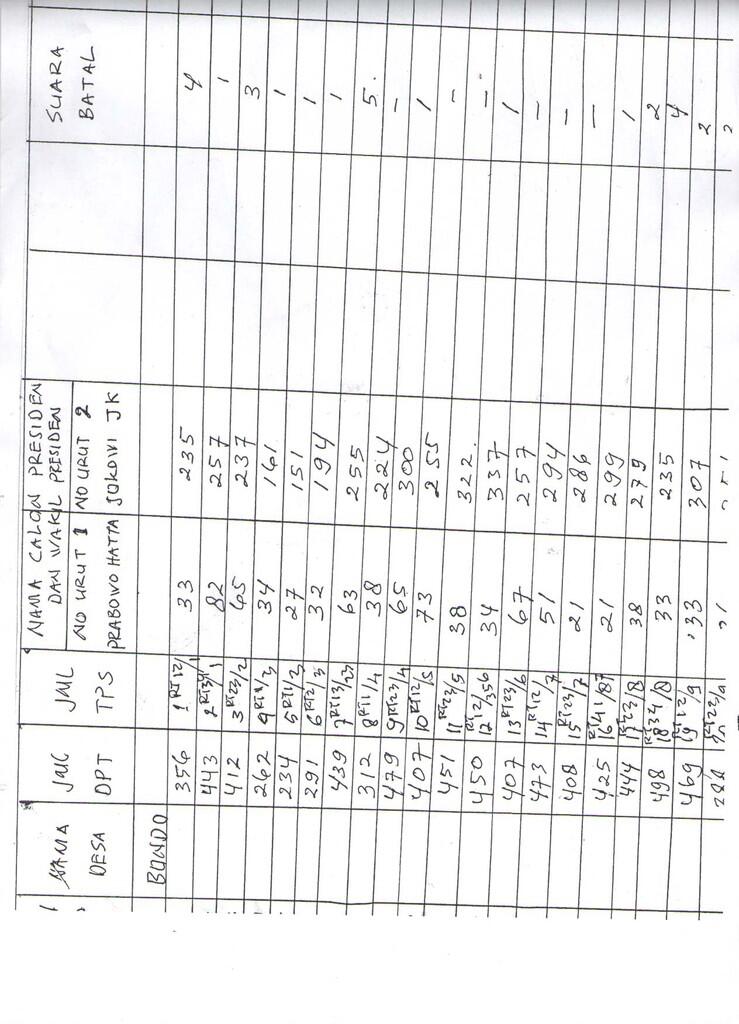 NAMA DESA | JML DPT | JML TPS | NAMA CALON PRESIDEN DAN WAKIL PRESIDEN | SUARA BATAL
NO URUT 1 PRABOWO HATTA | NO URUT 2 JOKOWI JK
BONDO
356 | 1 RT 12/1 | 33 | 235 | 4
443 | 2 RT 3/1 | 82 | 257 | 1
412 | 3 RT 23/2 | 65 | 237 | 3
262 | 4 RT 1/3 | 34 | 161 | 1
234 | 5 RT 1/3 | 27 | 151 | 1
291 | 6 RT 2/3 | 32 | 194 | 1
439 | 7 RT 3/23 | 63 | 255 | 5.
312 | 8 RT 1/4 | 38 | 224 | -
479 | 9 RT 23/4 | 65 | 300 | 1
407 | 10 RT 12/5 | 73 | 255 | -
451 | 11 RT 23/5 | 38 | 322. | -
450 | 12 12/356 | 34 | 337 | 1
407 | 13 RT 23/6 | 67 | 257 | -
473 | 14 RT 12/7 | 51 | 294 | -
408 | 15 RT 23/7 | 21 | 286 | -
425 | 16 | 21 | 299 | 1
444 | 17 RT 23/8 | 38 | 279 | 2
498 | 18 34/8 | 33 | 235 | 4
469 | 19 RT 12/9 | 33 | 307 | 2